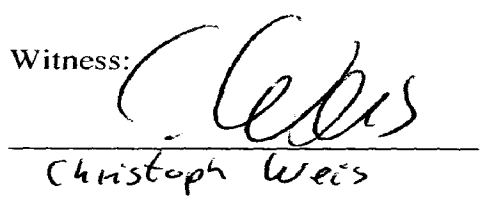 Witness: C. Weis
Christoph Weis